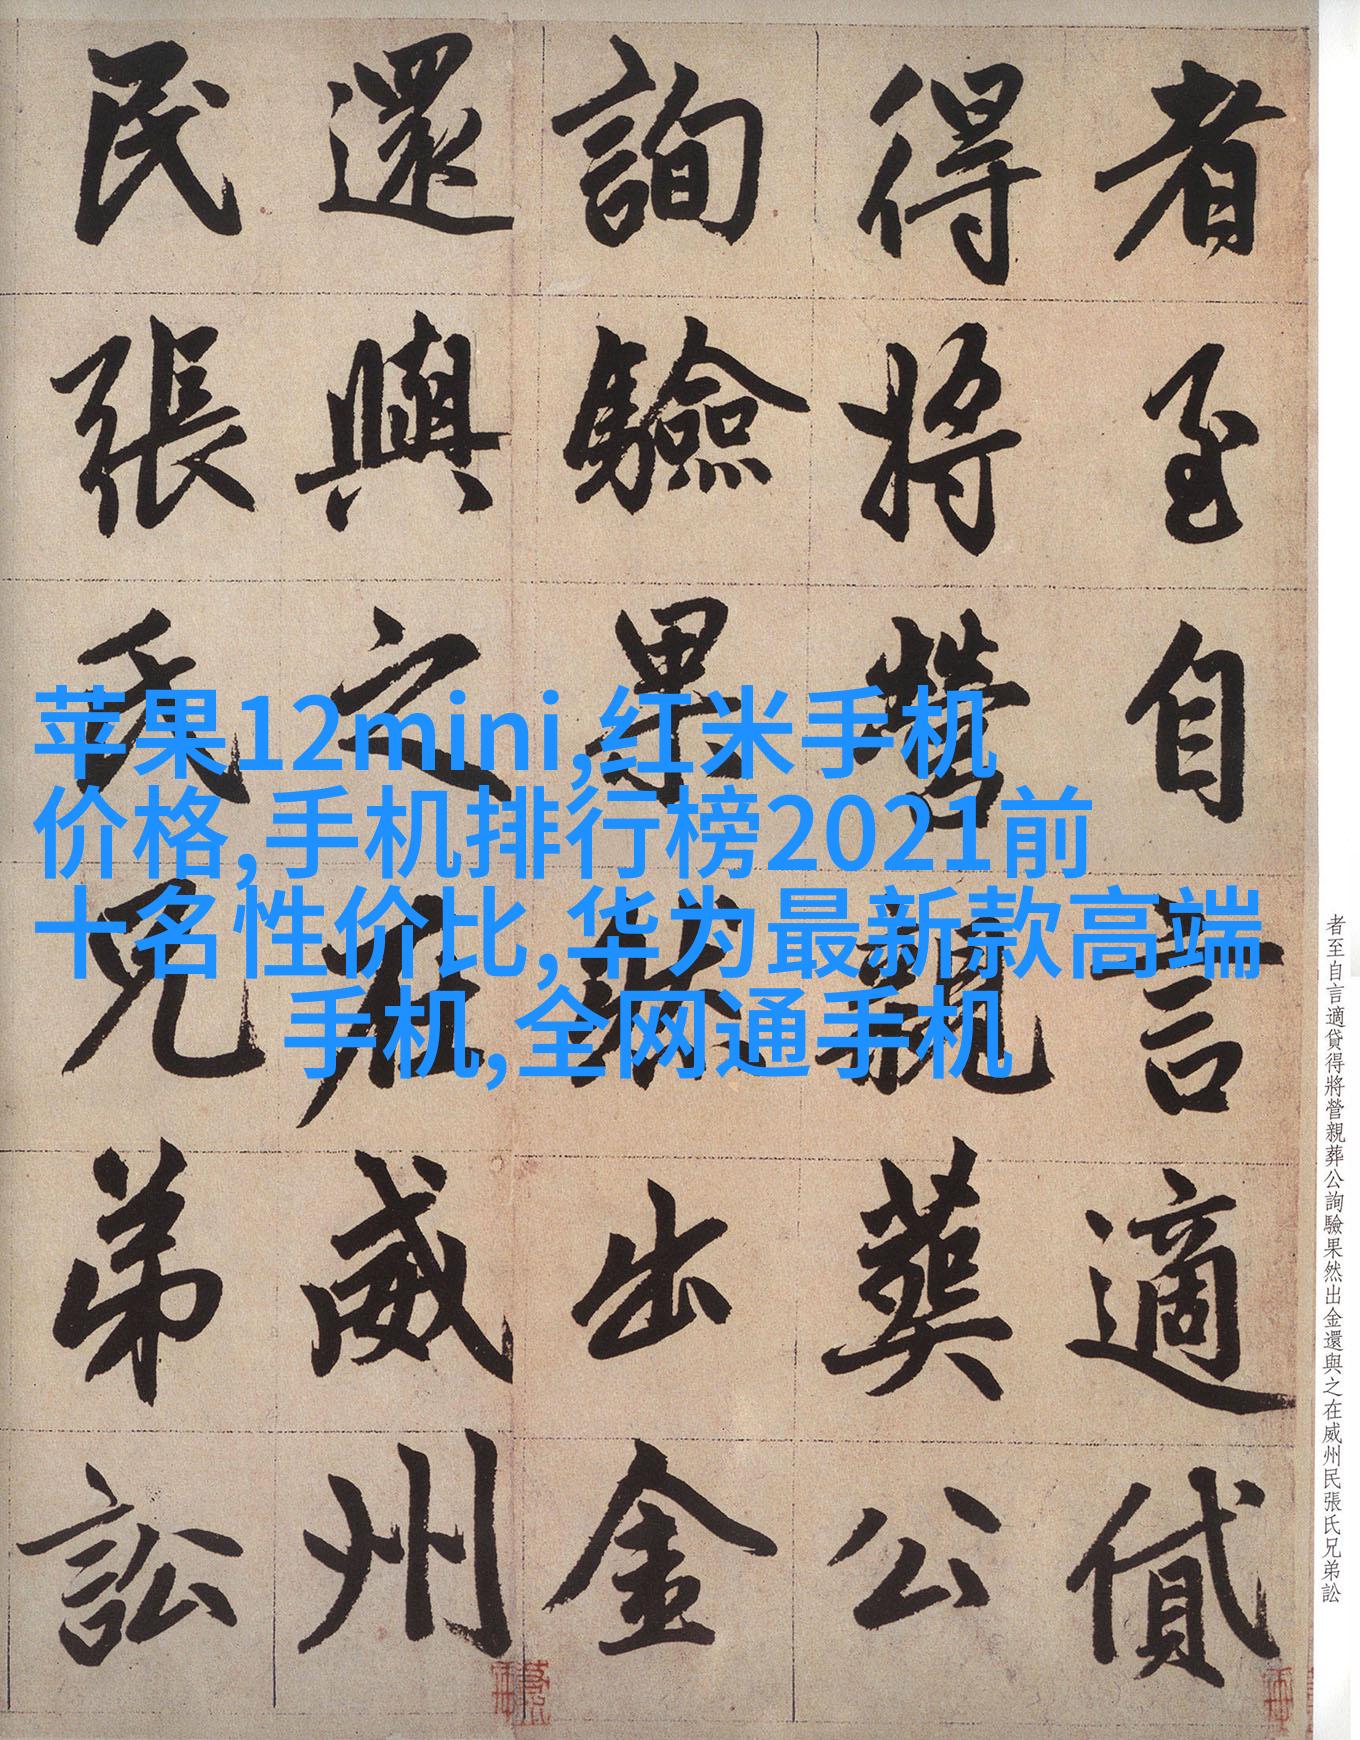 者至自言適貸
得將營親葬公
詢驗果然出金
還與之在威州
民張氏兄弟訟
苹果12mini,红米手机
价格,手机排行榜2021前
十名性价比,华为最新款高端
手机,全网通手机
者至自言適貸得將營親葬公詢驗果然出金還與之在威州民張氏兄弟訟